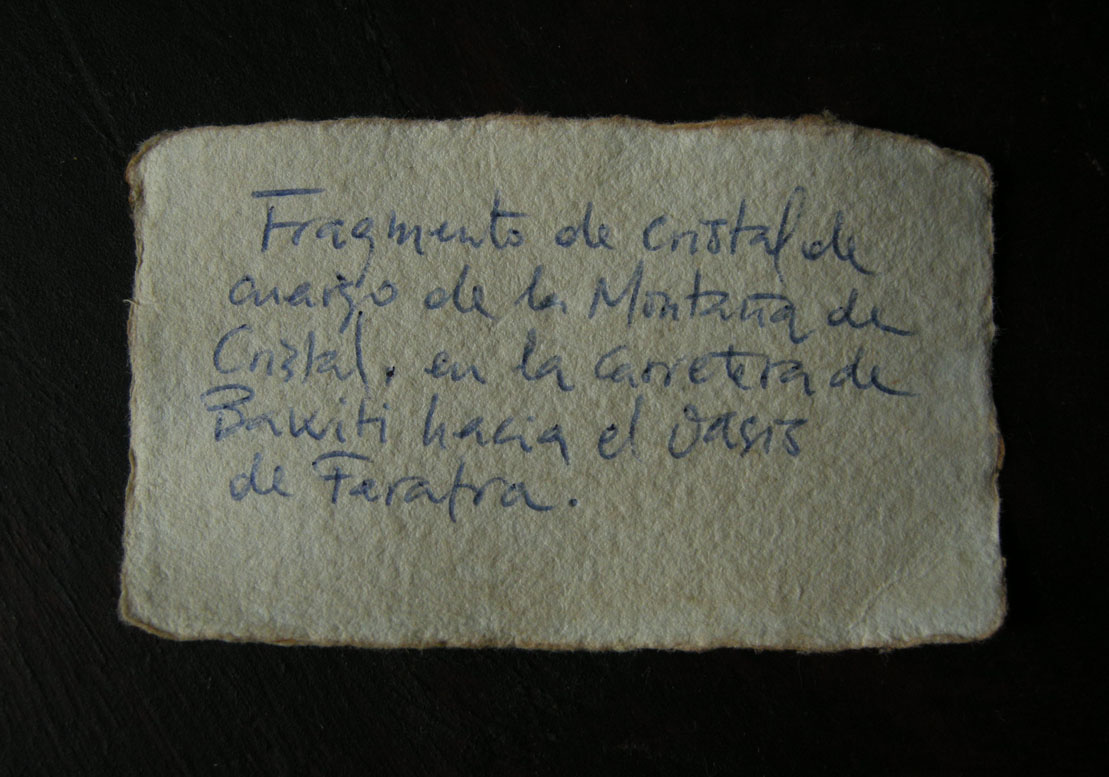 Fragmento de cristal de
cuarzo de la Montaña de
Cristal. en la carretera de
Bawiti hacia el oasis
de Farafra.